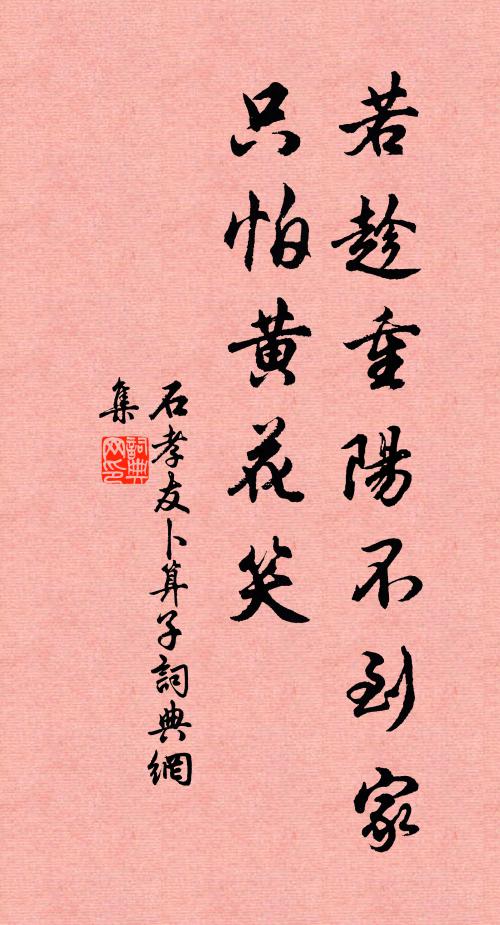 若趁重陽不到家
只怕黃花笑
石孝友卜算子詞典網
集
詞典網印